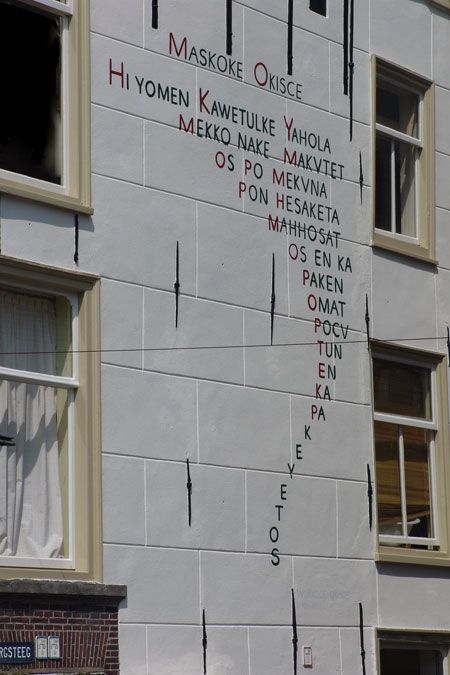 MASKOKE OKISCE
HI YOMEN KAWETULKE YAHOLA
MEKKO NAKE MAKVTET
OS PO MEKVNA
PON HESAKETA
MAHHOSAT
OS EN KA
PAKEN
OMAT
POCV
TUN
EN
KA
PA
K
E
Y
E
T
O
S
RGSTEEG